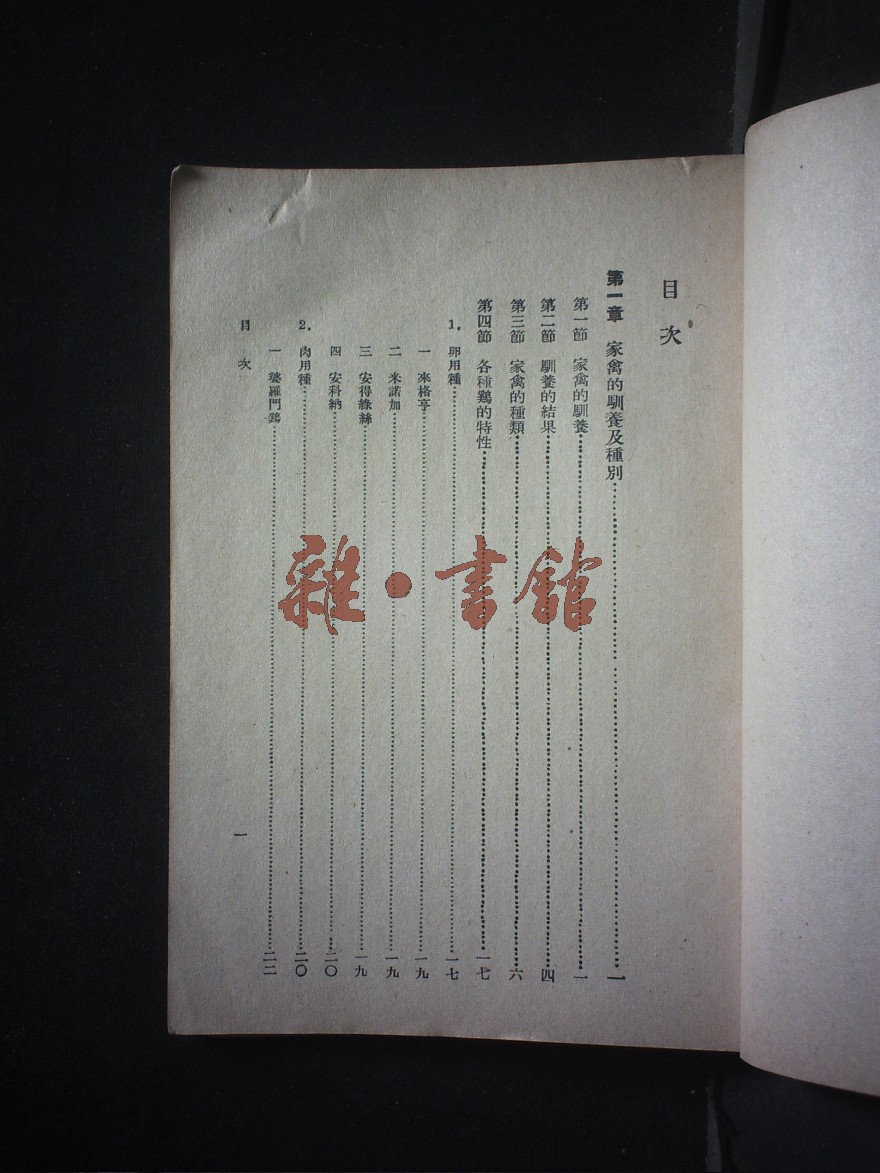 目次
第一章 家禽的馴養及種別……一
第一節 家禽的馴養……一
第二節 馴養的結果……四
第三節 家禽的種類……六
第四節 各種鷄的特性……一七
1. 卵用種……一七
一 來格亨……一九
二 米諾加……一九
三 安得綠絲……一九
四 安科納……二〇
2. 肉用種……二〇
一 婆羅門鷄……二二
目次 一
雜·書館